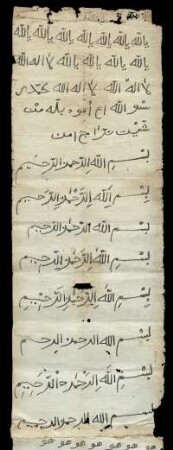 يالله يالله يالله يالله يالله يالله
يالله يالله يالله يالله لا اله الا الله
لا اله الا الله لا اله الا الله محمد
الله اعوذ بالله من
بسم الله الرحمن الرحيم
بسم الله الرحمن الرحيم
بسم الله الرحمن الرحيم
بسم الله الرحمن الرحيم
بسم الله الرحمن الرحيم
بسم الله الرحمن الرحيم
بسم الله الرحمن الرحيم
بسم الله الرحمن الرحيم
هو هو هو هو هو هو هو